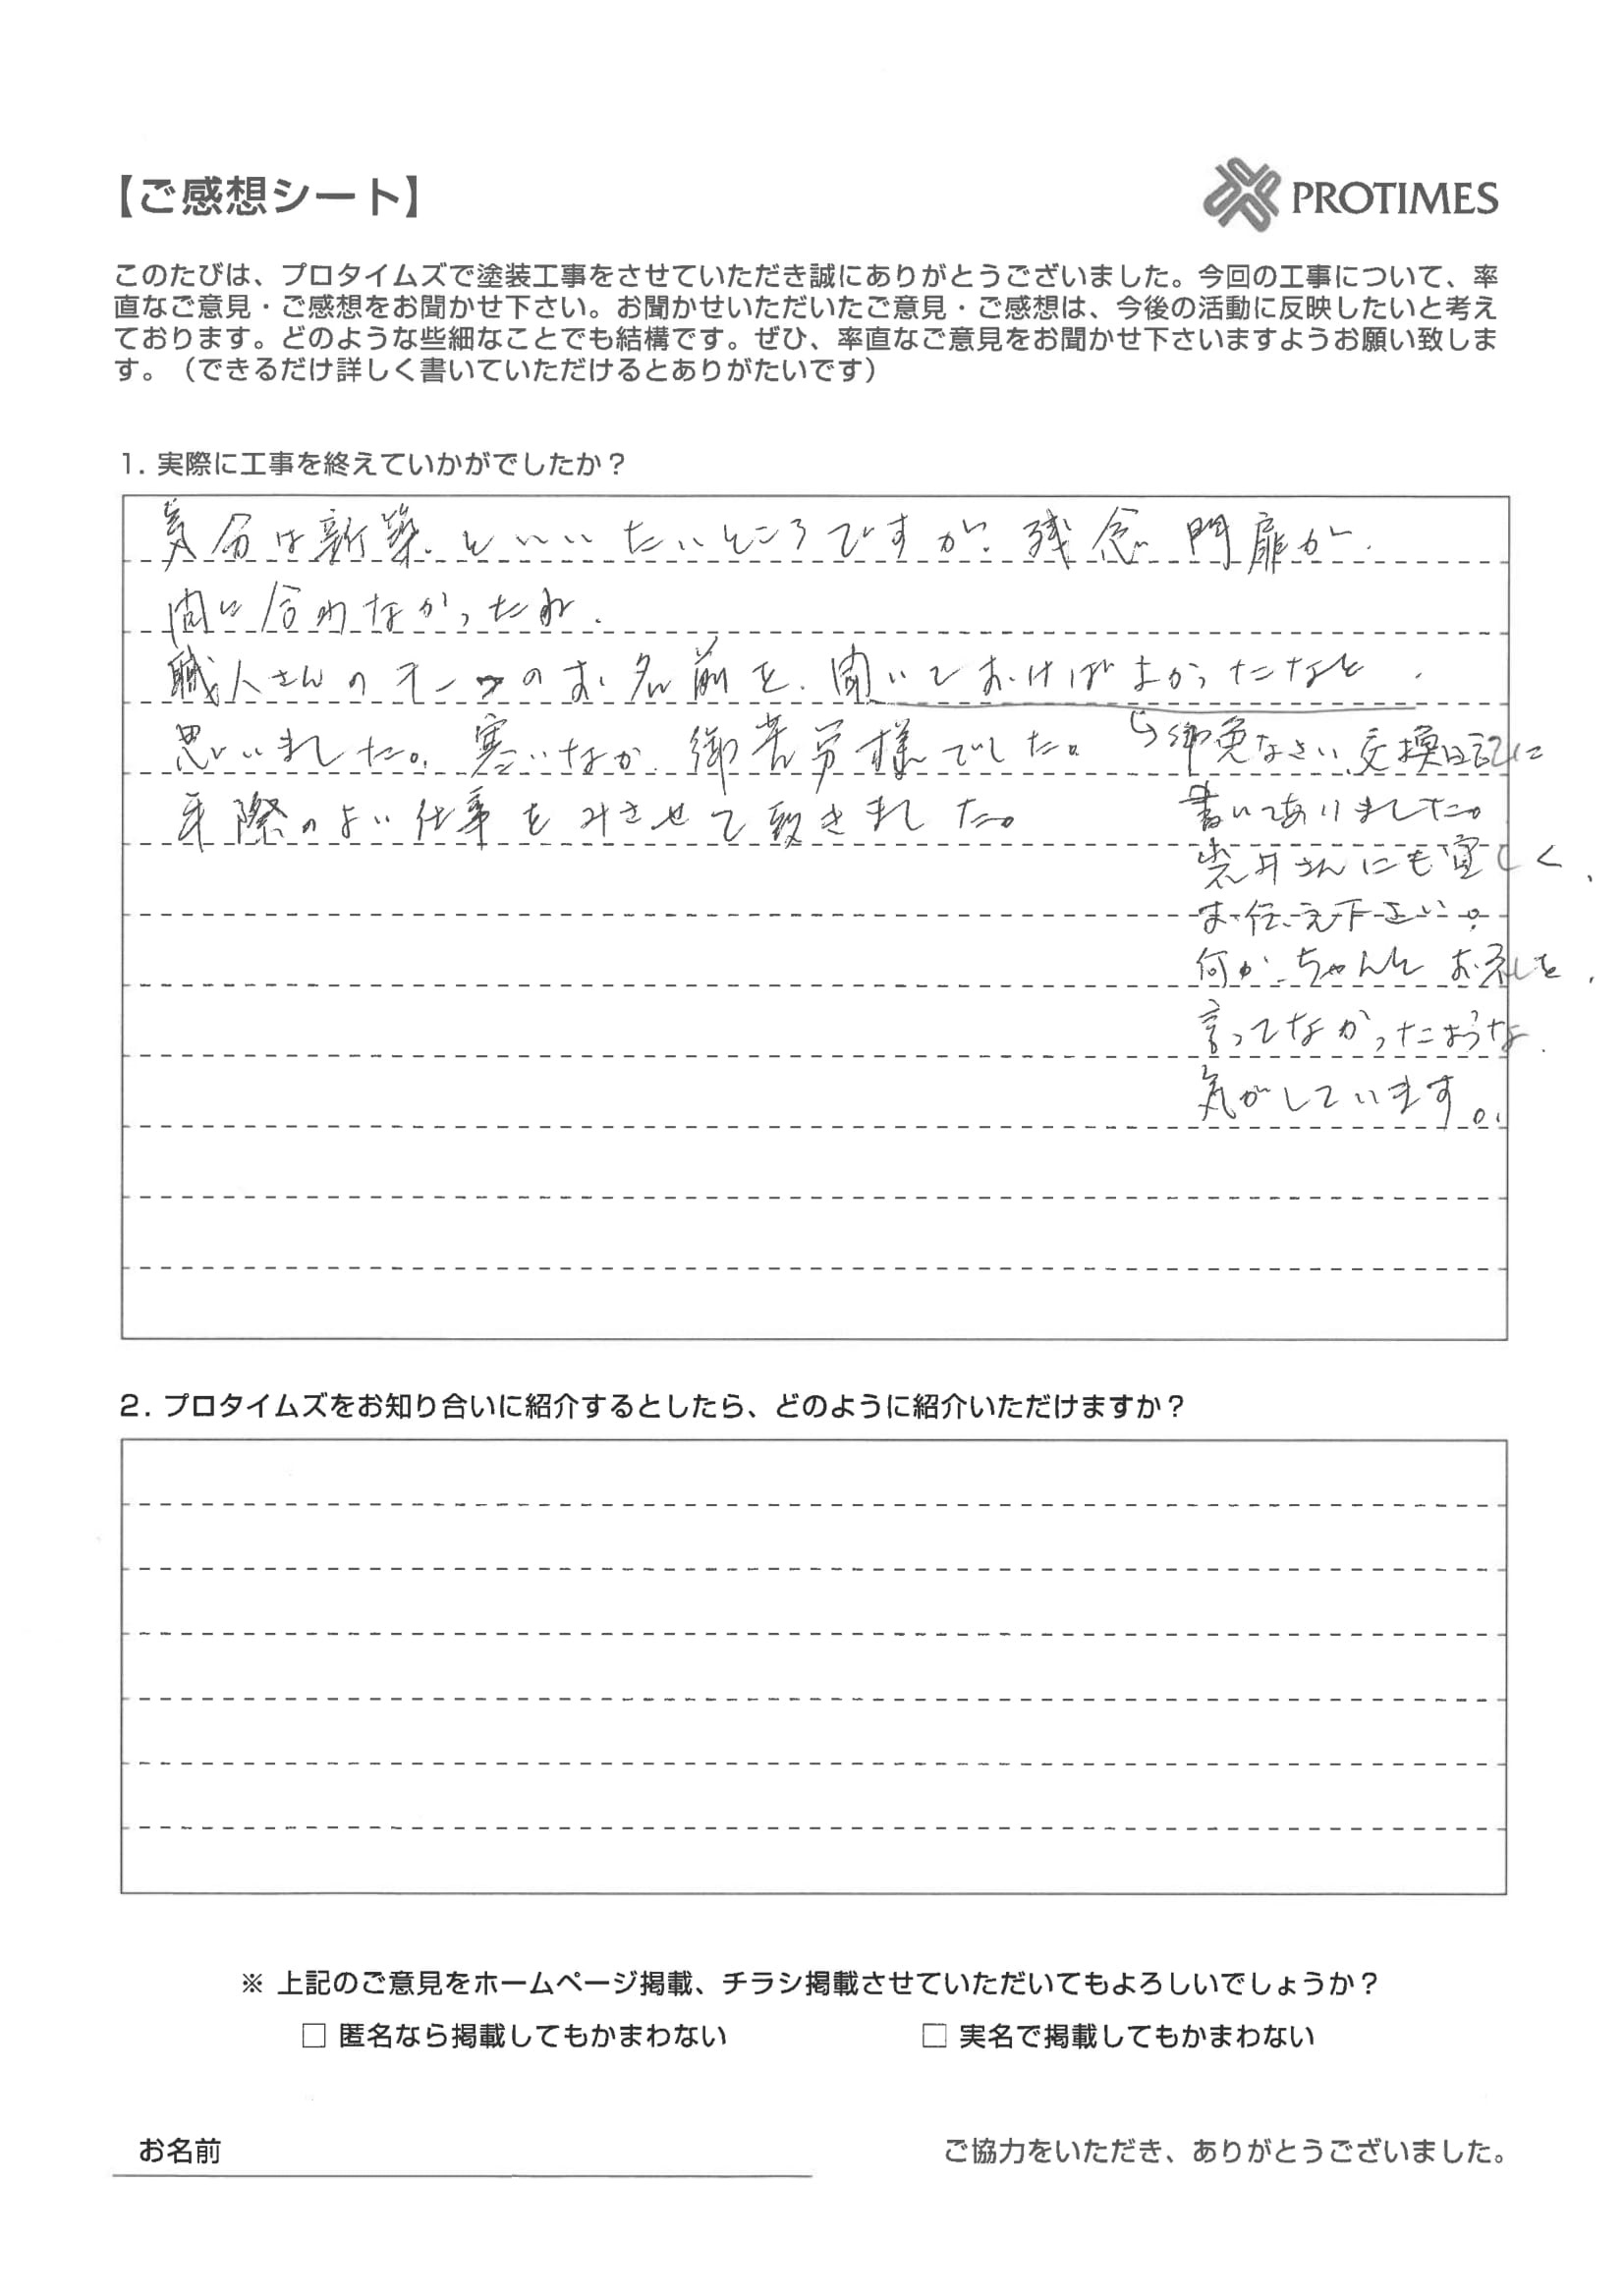 【ご感想シート】
PROTIMES
このたびは、プロタイムズで塗装工事をさせていただき誠にありがとうございました。今回の工事について、率
直なご意見・ご感想をお聞かせ下さい。お聞かせいただいたご意見・ご感想は、今後の活動に反映したいと考え
ております。どのような些細なことでも結構です。ぜひ、率直なご意見をお聞かせ下さいますようお願い致しま
す。（できるだけ詳しく書いていただけるとありがたいです）
1. 実際に工事を終えていかがでしたか？
気分は新築。といいたいところですが、残念 門扉が
間に合わなかったね。
職人さんの のお名前を、聞いておけばよかったなと
思いました。寒いなか、御苦労様でした。
手際のよい仕事をみさせて頂きました。
↳御免なさい、交換日記に
書いてありました。
岩井さんにも宜しく、
お伝え下さい。
何か、ちゃんと お礼を、
言ってなかったような
気がしています。
2. プロタイムズをお知り合いに紹介するとしたら、どのように紹介いただけますか？
※ 上記のご意見をホームページ掲載、チラシ掲載させていただいてもよろしいでしょうか？
□ 匿名なら掲載してもかまわない
□ 実名で掲載してもかまわない
お名前
ご協力をいただき、ありがとうございました。